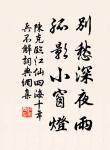 別愁深夜雨
孤影小窗燈
陳克臨江仙四海十年
兵不解詞典偶集